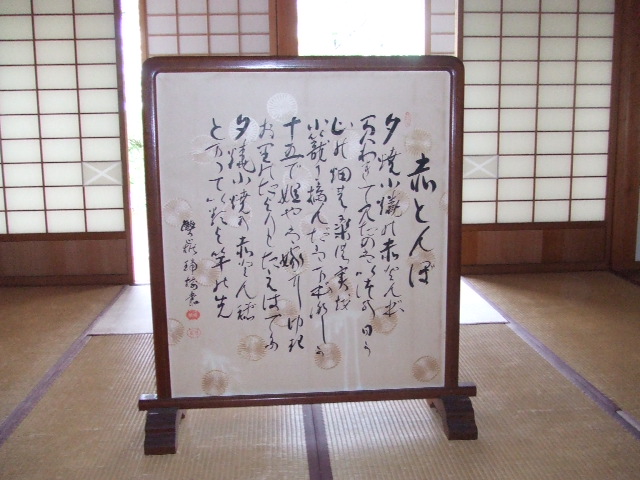 赤とんぼ
夕焼小焼の赤とんぼ
負われてみたのはいつの日か
山の畑の桑の実を
小籠に摘んだはまぼろしか
十五で姐やは嫁に行き
お里のたよりもたえはてた
夕焼小焼の赤とんぼ
とまっているよ竿の先